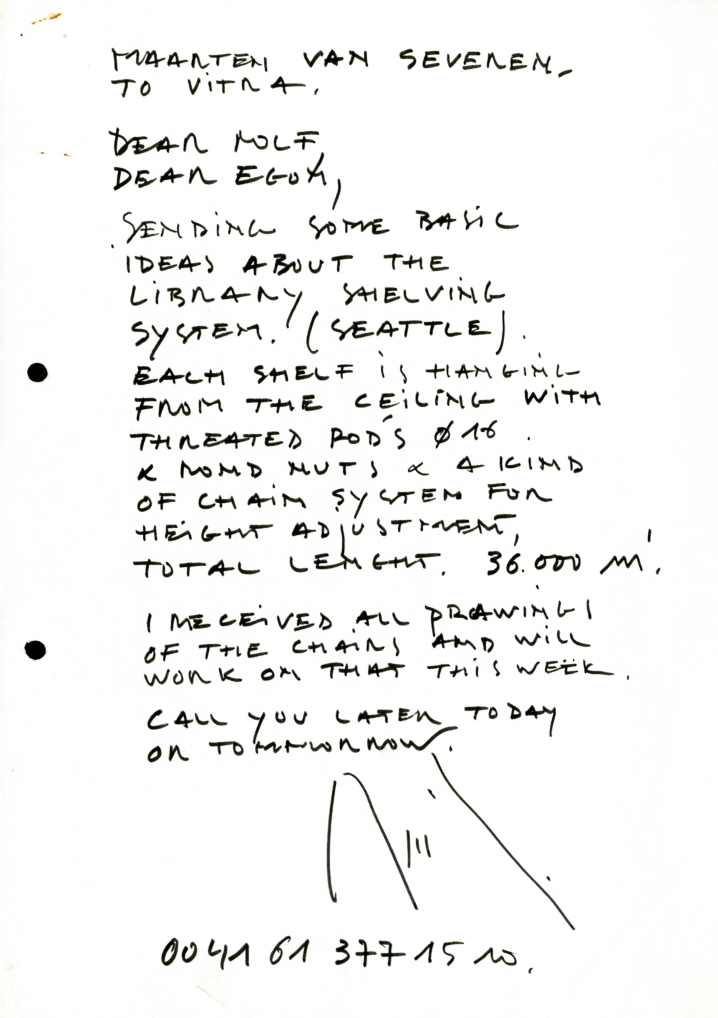 MAARTEN VAN SEVEREN
TO VITRA.
DEAR ROLF,
DEAR EGON,
SENDING SOME BASIC
IDEAS ABOUT THE
LIBRARY SHELVING
SYSTEM. (SEATTLE).
EACH SHELF IS HANGING
FROM THE CEILING WITH
THREATED ROD'S Ø 16.
& ROND NUTS & A KIND
OF CHAIN SYSTEM FOR
HEIGHT ADJUSTMENT,
TOTAL LENGHT. 36.000 m!
I RECEIVED ALL DRAWINGS
OF THE CHAIRS AND WILL
WORK ON THAT THIS WEEK.
CALL YOU LATER TODAY
OR TOMMORROW.
0041 61 377 15 10.